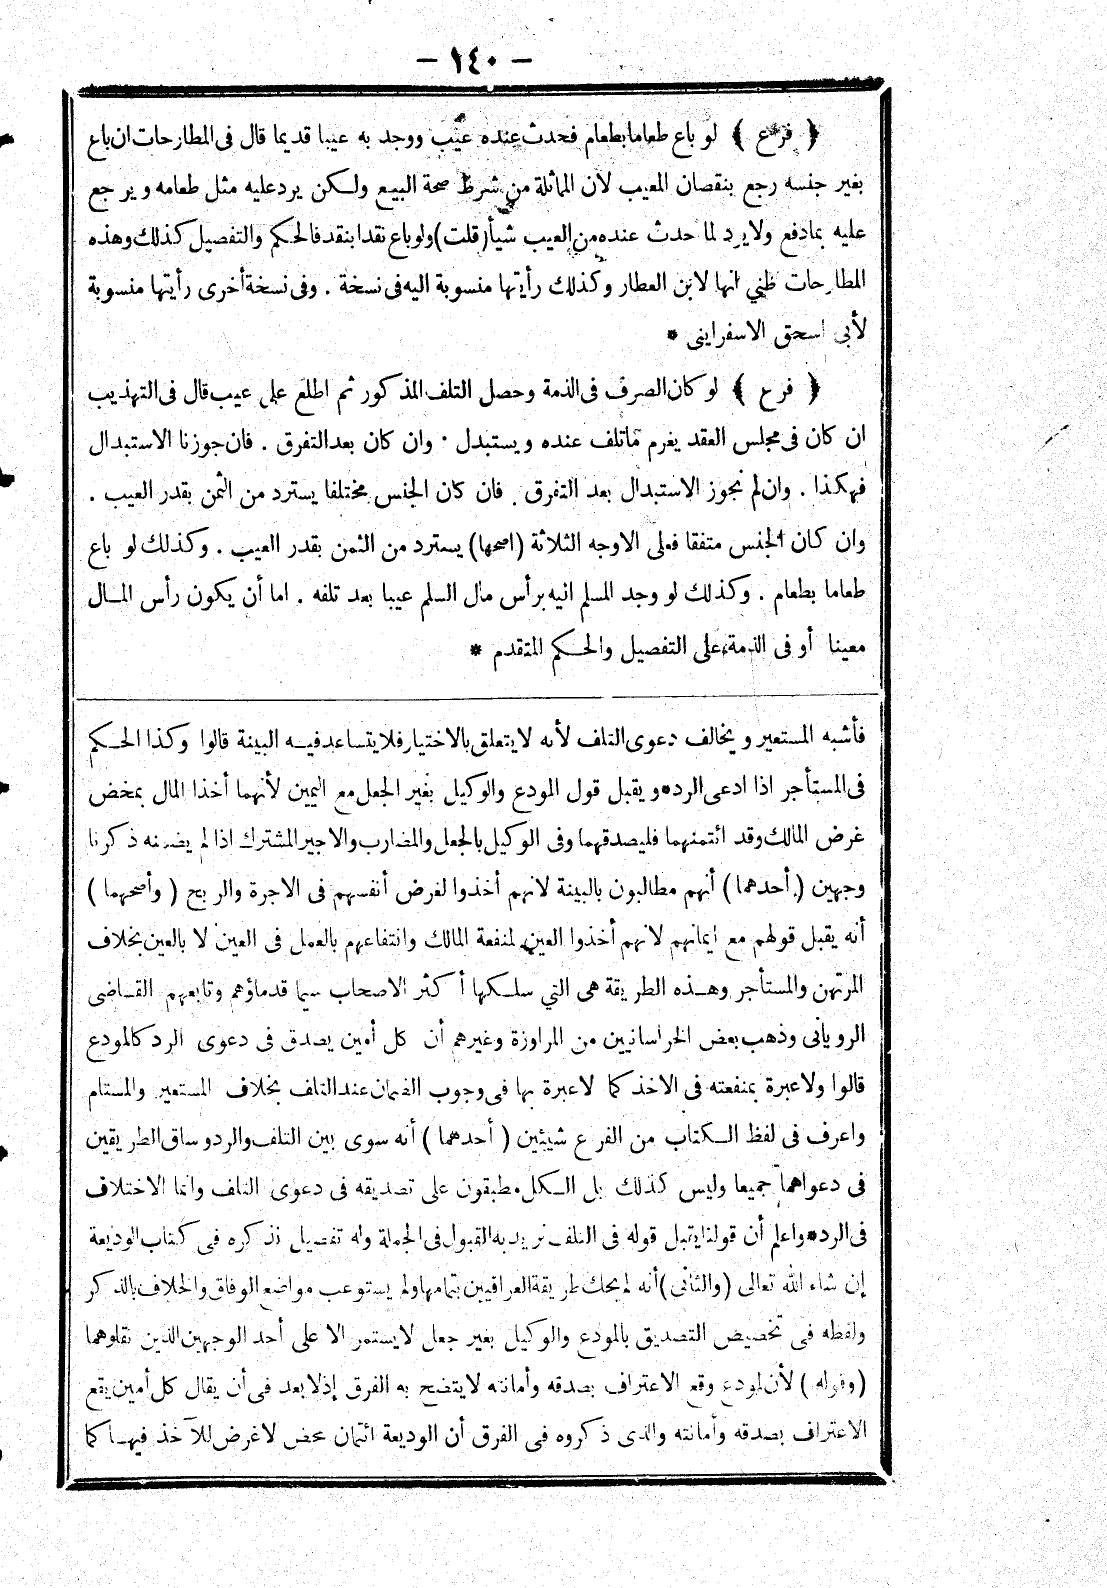 – ١٤٠ –
﴿ فرع ﴾ لو باع طعاما بطعام فحدث عنده عيب ووجد به عيبا قديما قال فى المطارحات ان باع
بغير جنسه رجع بنقصان المعيب لأن المماثلة من شرط صحة البيع ولكن يرد عليه مثل طعامه ويرجع
عليه بما دفع ولا يرد لما حدث عنده من العيب شيأ (قلت) ولو باع نقدا بنقد فالحكم والتفصيل كذلك وهذه
المطارحات ظني انها لابن القطار وكذلك رأيتها منسوبة اليه فى نسخة . وفى نسخة أخرى رأيتها منسوبة
لأبى اسحق الاسفراينى *
﴿ فرع ﴾ لو كان الصرف فى الذمة وحصل التلف المذكور ثم اطلع على عيب قال فى التهذيب
ان كان فى مجلس العقد يغرم ماتلف عنده ويستبدل . وان كان بعد التفرق . فان جوزنا الاستبدال
فهكذا . وان لم نجوز الاستبدال بعد التفرق . فان كان الجنس مختلفا يسترد من الثمن بقدر العيب .
وان كان الجنس متفقا فعلى الاوجه الثلاثة (اصحها) يسترد من الثمن بقدر العيب . وكذلك لو باع
طعاما بطعام . وكذلك لو وجد المسلم اليه برأس مال السلم عيبا بعد تلفه . اما أن يكون رأس المال
معينا أو فى الذمة على التفصيل والحكم المتقدم *
فأشبه المستعير ويخالف دعوى التلف لأنه لا يتعلق بالاختيار فلا يتساعد فيه البينة قالوا وكذا الحكم
فى المستأجر اذا ادعى الرد * ويقبل قول المودع والوكيل بغير الجعل مع اليمين لأنهما أخذا المال بمحض
غرض المالك وقد ائتمنهما فليصدقهما وفى الوكيل بالجعل والمضارب والاجير المشترك اذا لم يضمنه ذكرنا
وجهين (أحدهما) أنهم مطالبون بالبينة لانهم أخذوا لغرض أنفسهم فى الاجرة والربح (وأصحهما)
أنه يقبل قولهم مع ايمانهم لانهم أخذوا العين لمنفعة المالك وانتفاعهم بالعمل فى العين لا بالعين بخلاف
المرتهن والمستأجر وهذه الطريقة هى التي سلكها أكثر الاصحاب سيما قدماؤهم وتابعهم القاضى
الرويانى وذهب بعض الخراسانيين من المراوزة وغيرهم أن كل أمين يصدق فى دعوى الرد كالمودع
قالوا ولا عبرة بمنفعته فى الاخذ كما لا عبرة بها فى وجوب الضمان عند التلف بخلاف المستعير والمستام
واعرف فى لفظ الكتاب من الفرع شيئين (أحدهما) أنه سوى بين التلف والرد وساق الطريقين
فى دعواهما جميعا وليس كذلك بل الكل مطبقون على تصديقه فى دعوى التلف وانما الاختلاف
فى الرد * واعلم أن قولنا يقبل قوله فى التلف نريد به القبول فى الجملة وله تفصيل نذكره فى كتاب الوديعة
إن شاء الله تعالى (والثانى) أنه لم يحك طريقة العراقيين بتمامها ولم يستوعب مواضع الوفاق والخلاف بالذكر
ولفظه فى تخصيص التصديق بالمودع والوكيل بغير جعل لا يستمر الا على أحد الوجهين الذين نقلوهما
(وقوله) لأن لمودع وقع الاعتراف بصدقه وأمانته لا يتضح به الفرق إذ لا بعد فى أن يقال كل أمين يقع
الاعتراف بصدقه وأمانته والذى ذكروه فى الفرق أن الوديعة ائتمان محض لا غرض للآخذ فيها كما